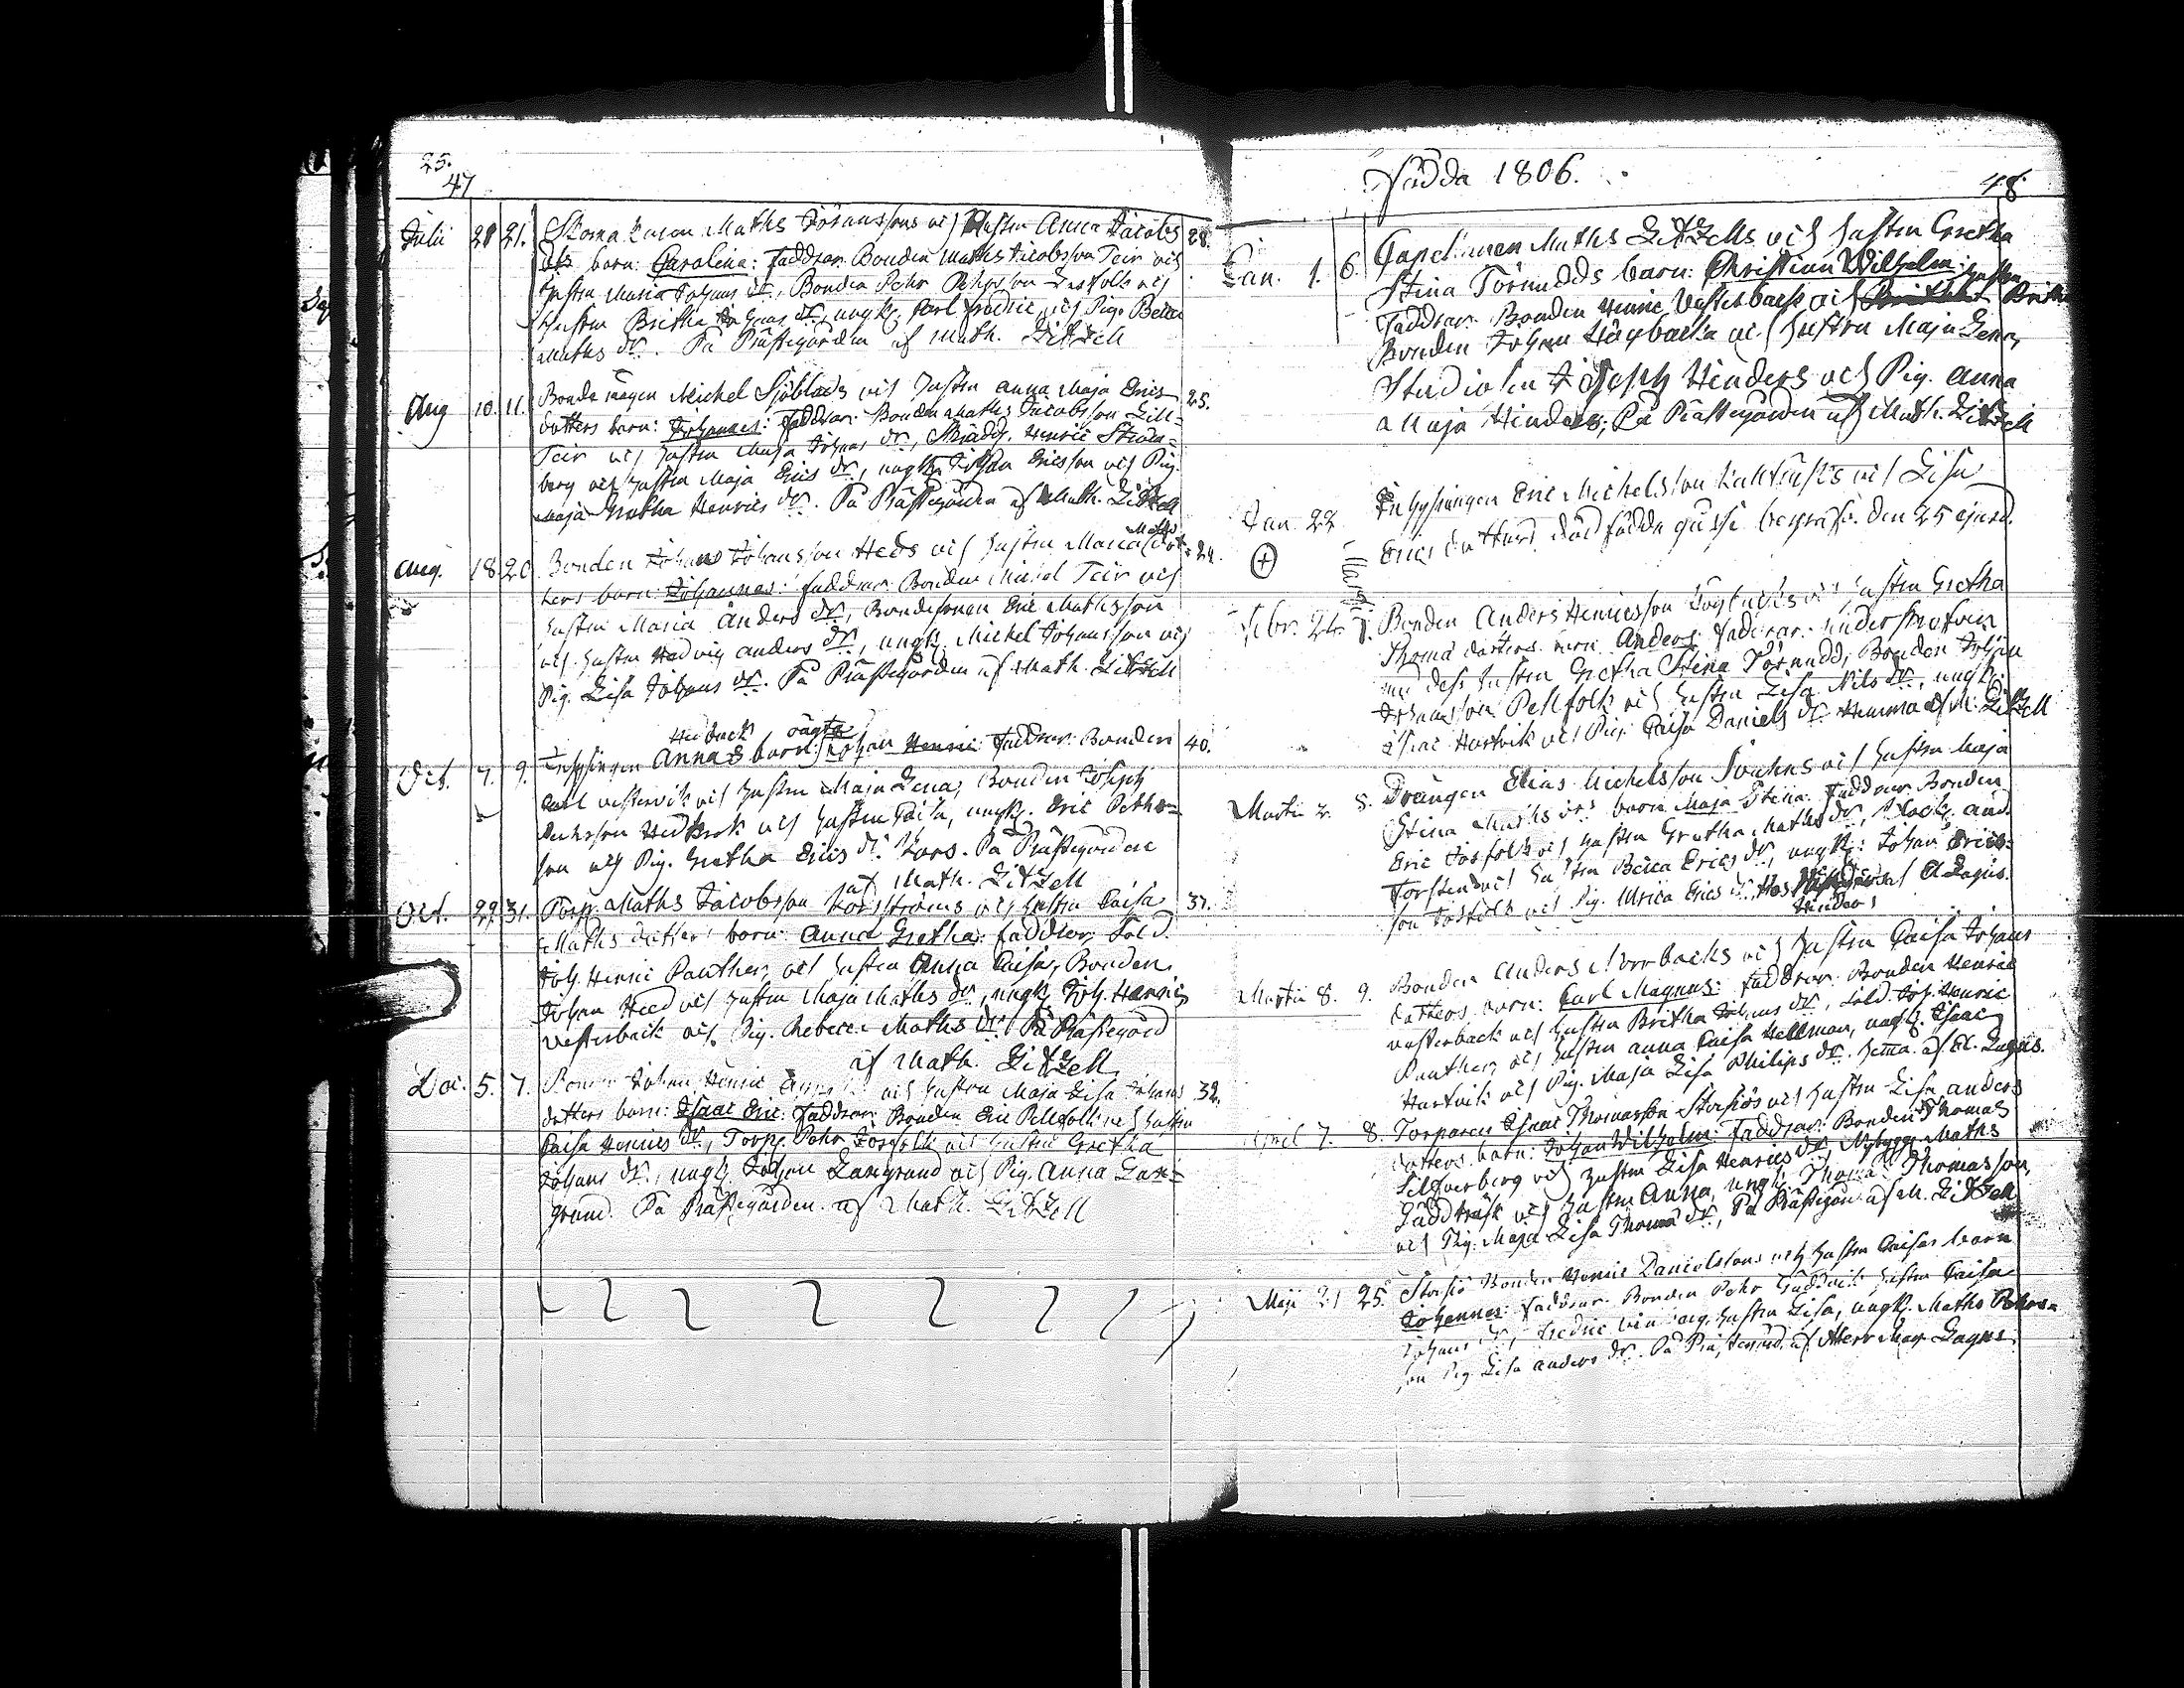 25.
47
Julii 21 21. Skomakaren Maths Johanssons och Hustru Anna Jacobs 28.
dr barn: Carolina: Faddrar: Bonden Maths Jacobsson Teir och
Hustru Maria Johans dr, Bonden Pehr Pehrsson och
Hustru Britha Johans dr, ungk. Carl Fredric och Pig. Beata
Maths dr. På Prästegården af Math. Litzell
Aug 10. 11. Bonde mågen Michel Sjöblads och Hustru Anna Maja Erics 25.
dotters barn: Johannes: Faddrar: Bonden Maths Jacobsson Lill-
Teir och Hustru Maja Johans dr, Skrädd. Henric Ström-
berg och Hustru Maja Erics dr, ungk. Johan Ericsson och Pig.
Maja Gretha Henrics dr. På Prästegården af Math. Litzell
Maths
Aug. 18 20 Bonden Johans Johansson Heds och Hustru Maria dot- 24.
ters barn: Johannes: Faddrar: Bonden Michel Teir och
Hustru Maria Anders dr, Bondesonen Eric Mathsson
och Hustru Hedvig Anders dr, ungk. Michel Johansson och
Pig. Lisa Johans dr. På Prästegården af Math. Litzell
Hedback oägta
Oct. 7. 9. Inhysingen Annas barn: Johan Henric: Faddrar: Bonden 40.
Carl Vestervik och Hustru Maja Lena, Bonden Joseph
Hedback och Hustru Caisa, ungk. Eric Pethrs-
son och Pig. Gretha Erics dr. Kors. På Prästegården
af Math. Litzell
Oct. 29 31. Torp. Maths Jacobsson Korsströms och Hustru Caisa 37.
Maths dotters barn: Anna Gretha: Faddrar, Sold.
Joh. Henric Panther, och Hustru Anna Caisa, Bonden
Johan Heed och Hustru Maja Maths dr, ungk. Joh. Henric
Vesterback och Pig. Rebecca Maths dr. På Prästegård
af Math. Litzell
Dec. 5. 7. Bonden Johan Henric och Hustru Maja Lisa Johans 32.
dotters barn: Isaac Eric: Faddrar: Bonden Eric Pellfolk och Hustru
Caisa Henrics dr, Torp. Pehr Josfolk och Hustru Gretha
Johans dr, ungk. Johan Långrund och Pig. Anna Lån-
grund. På Prästegården af Math. Litzell
Födda 1806.
48
Jan. 1. 6. Capelmanen Maths Litzells och Hustru Gretha
Stina Törnudds barn: Christian Wilhelm: Hustru
Faddrar: Bonden Henric Vesterback och Britha
Bonden Johan Högbacka och Hustru Maja Lena,
Studiosen Joseph Hinders och Pig. Anna
Maja Hinders; På Prästegården af Math. Litzell
Jan. 22 Inhysingen Eric Michelsson och Lisa
Erics dotters död födda gosse begrafs. den 25 ejusd.
Martii
Febr. 24. Bonden Anders Henricsson och Hustru Gretha
Thomä dotters barn: Anders: Faddrar: Underskrefven
med dess Hustru Gretha Stina Törnudd, Bonden Johan
Johansson Pellfolk och Hustru Lisa Nils dr, ungk.
Isac Hartvik och Pig. Caisa Daniels dr Hemma af M. Litzell
Martii 2. 5. Drängen Elias Michelsson och Hustru Maja
Stina Maths drs barn: Maja Stina: Faddrar: Bonden
Eric Josfolk och Hustru Gretha Maths dr, Klock. And.
Forsten och Hustru Beata Erics dr, ungk: Johan Erics-
son Josfolk och Pig. Ulrica Erics dr, Hos Hinders af A Lagus.
Martii 8. 9. Bonden Anders Norrbacks och Hustru Caisa Johans
dotters barn: Carl Magnus: Faddrar: Bonden Henric
Vesterback och Hustru Britha Johans dr, Sold. Joh. Henric
Panther, och Hustru Anna Caisa Hellman, ungk. Isaac
Hartvik och Pig. Maja Lisa Philips dr. Hemma. af El. Lagus.
April 7. 8. Torparen Isaac Thomasson Storsjös och Hustru Lisa Anders
dotters barn: Johan Wilhelm: Faddrar: Bonden Thomas
Silfverberg och Hustru Lisa Henrics dr Nybygg. Maths
Gäddträsk och Hustru Anna, ungk. Thomas Thomasson,
och Pig. Maja Lisa Thomä dr, På Prästegård. af M. Litzell
Maji 21 25. Storsjö Bonden Henric Danielssons och Hustru Caisas barn
Johannes: Faddrar: Bonden Pehr Hustru Caisa
Johans dr, Fredric Hustru Lisa, ungk. Maths Pehrs-
son Pig. Lisa Anders dr. På Prästegård. af Herr Mag. Lagus.